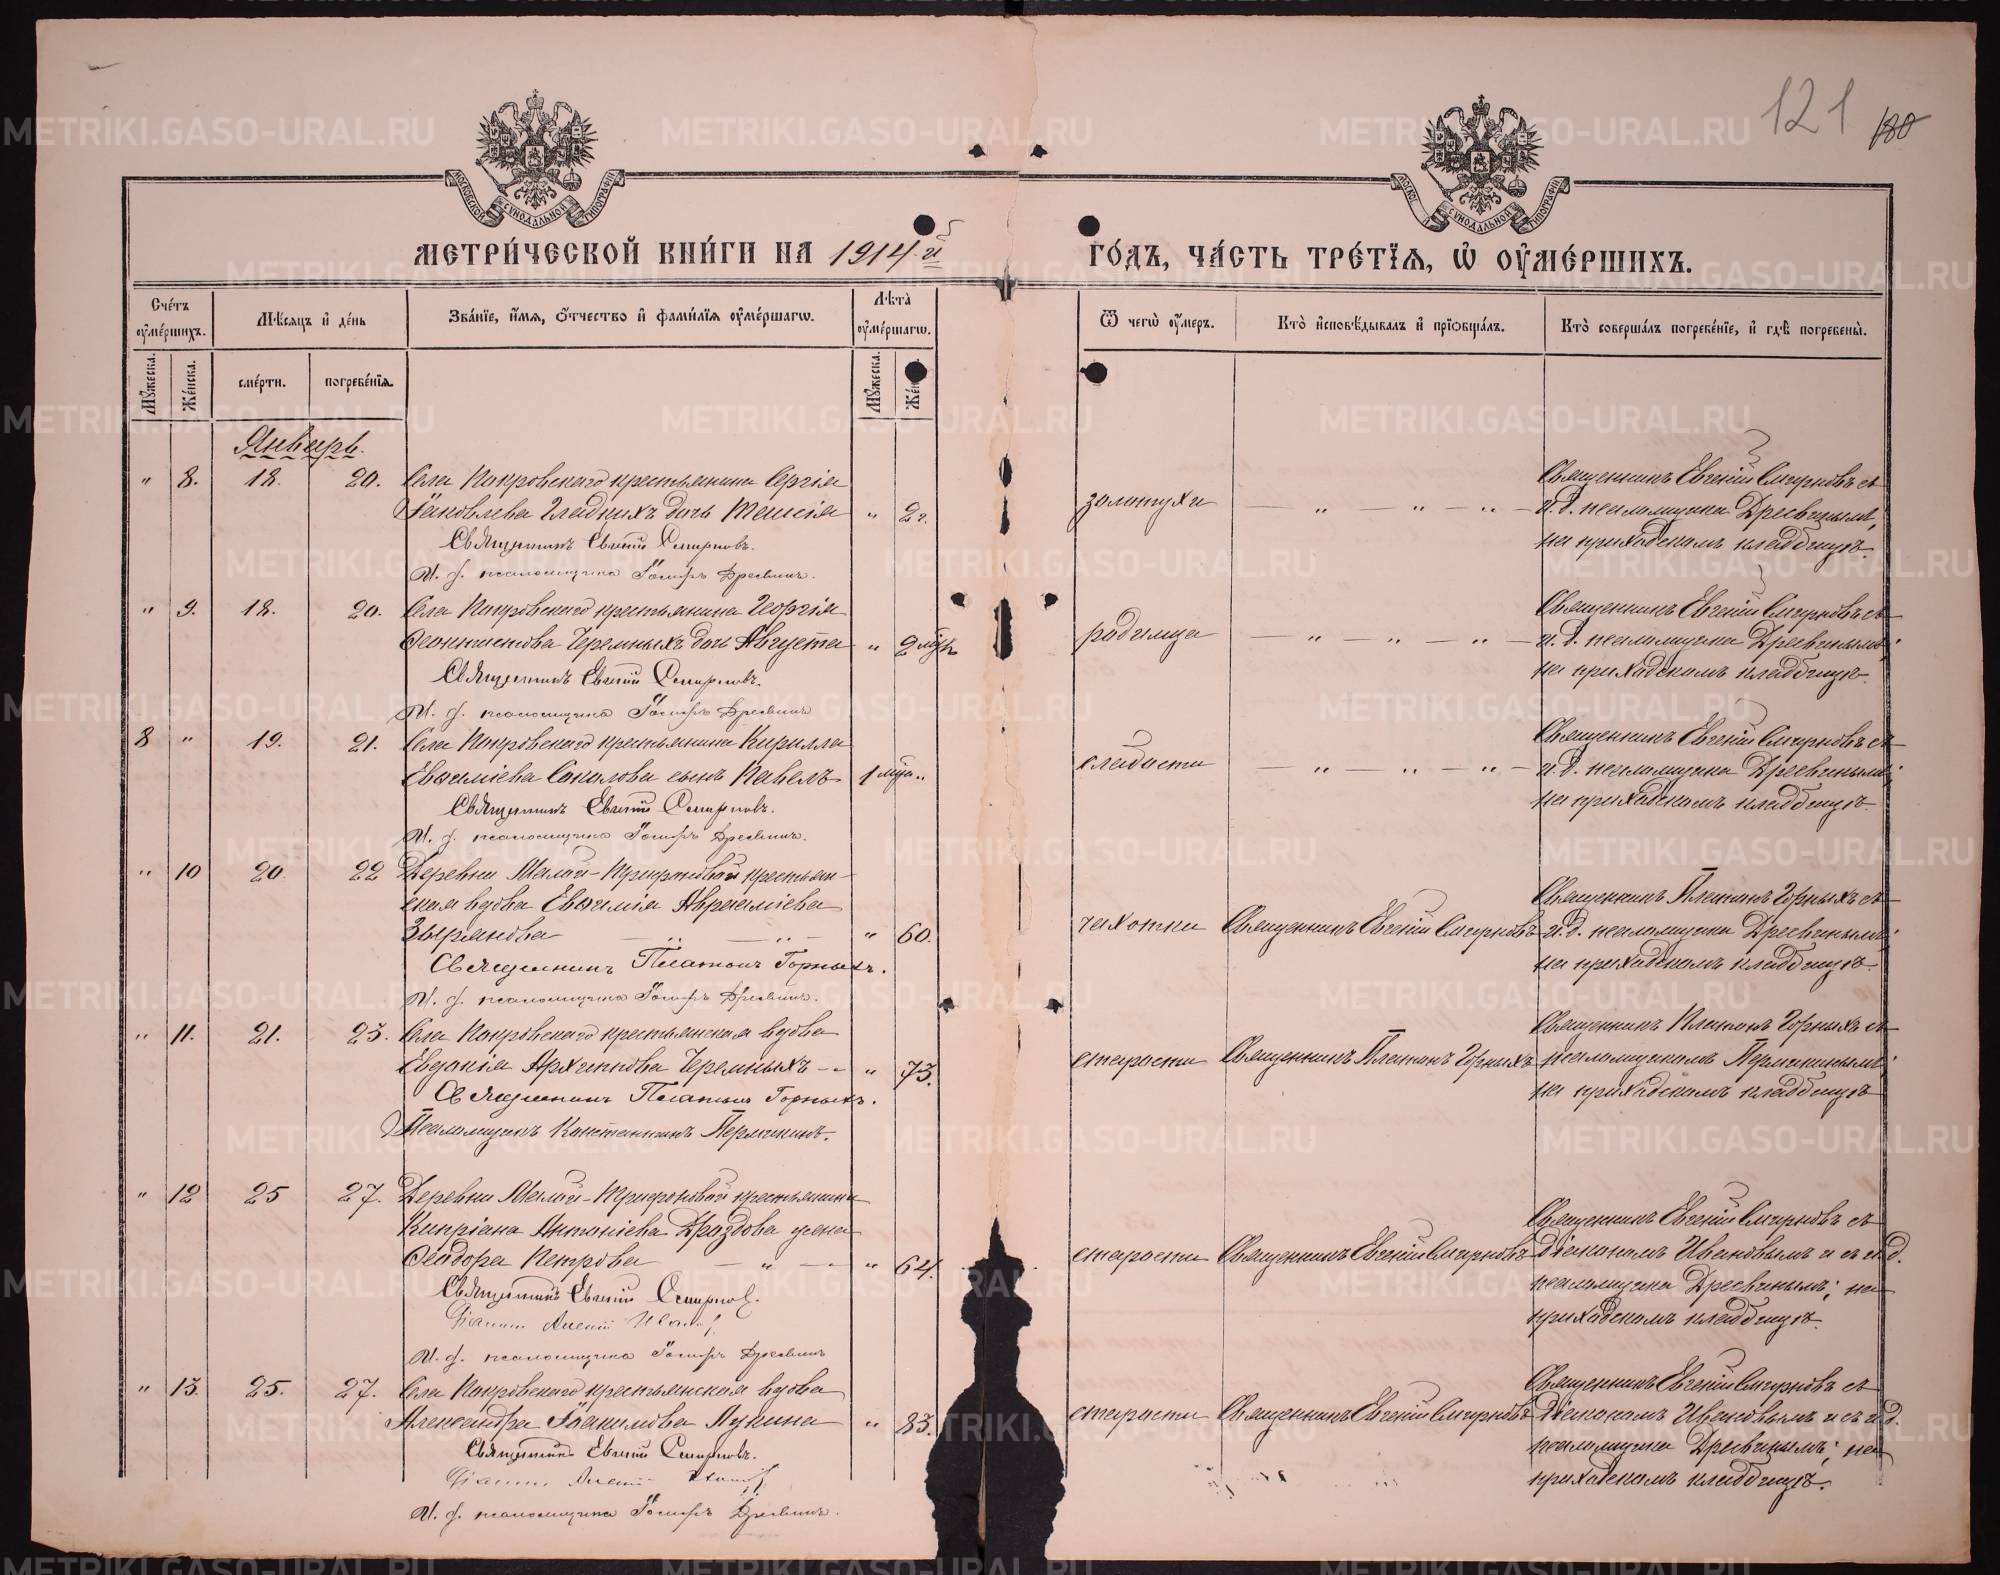 121 180
МОСКОВСКОЙ СѴНОДАЛЬНОЙ ТИПОГРАФІИ
МОСКОВСКОЙ СѴНОДАЛЬНОЙ ТИПОГРАФІИ
МЕТРИ́ЧЕСКОЙ КНИ́ГИ НА 1914й ГО́ДЪ, ЧА́СТЬ ТРЕ́ТІѦ, Ѡ҆ ОУ҆МЕ́РШИХЪ.
Сче́тъ оу҆ме́ршихъ.
Мꙋ́жеска.
Же́нска.
Мѣ́сѧцъ и҆ де́нь
сме́рти.
погребе́нїѧ.
Зва́нїе, и҆́мѧ, ѻ҆́тчество и҆ фами́лїѧ оу҆ме́ршагѡ.
Лѣ́та оу҆ме́ршагѡ.
Мꙋ́жеска.
Же́н
Ѿ чегѡ̀ оу҆́меръ.
Кто̀ и҆сповѣ́дывалъ и҆ прїѡбща́лъ.
Кто̀ соверша́лъ погребе́нїе, и҆ гдѣ̀ погребены̀.
Январь.
" 8. 18. 20. Села Покровскаго крестьянина Сергія
Іаковлева Гладкихъ дочь Таисія " 2г.
Священникъ Евгеній Смирновъ.
И. д. псаломщика Іосифъ Дресвинъ.
золотухи — " — " — " —
Священникъ Евгеній Смирновъ съ
и.д. псаломщика Дресвинымъ,
на приходскомъ кладбищѣ.
" 9. 18. 20. Села Покровскаго крестьянина Георгія
Ѳеоктистова Черемныхъ дочь Августа " 2 мѣс.
Священникъ Евгеній Смирновъ.
И. д. псаломщика Іосифъ Дресвинъ
родимца — " — " — " —
Священникъ Евгеній Смирновъ съ
и.д. псаломщика Дресвинымъ;
на приходскомъ кладбищѣ.
8 " 19. 21. Села Покровскаго крестьянина Кирилла
Евѳиміева Соколова сынъ Павелъ 1 мѣс. "
Священникъ Евгеній Смирновъ.
И. д. псаломщика Іосифъ Дресвинъ.
слабости — " — " — " —
Священникъ Евгеній Смирновъ съ
и.д. псаломщика Дресвинымъ;
на приходскомъ кладбищѣ.
" 10 20. 22 Деревни Малой-Трифоновой крестьян-
ская вдова Евѳимія Авраміева
Зырянова — " — " — " 60.
Священникъ Платонъ Горныхъ.
И. д. псаломщика Іосифъ Дресвинъ.
чахотки Священникъ Евгеній Смирновъ
Священникъ Платонъ Горныхъ съ
и.д. псаломщика Дресвинымъ;
на приходскомъ кладбищѣ.
" 11. 21. 23. Села Покровскаго крестьянская вдова
Евдокія Архипова Черемныхъ - " 73.
Священникъ Платонъ Горныхъ.
Псаломщикъ Константинъ Пермикинъ.
старости Священникъ Платонъ Горныхъ
Священникъ Платонъ Горныхъ съ
псаломщикомъ Пермикинымъ;
на приходскомъ кладбищѣ
" 12 25 27. Деревни Малой-Трифоновой крестьянина
Кипріана Антоніева Дроздова жена
Ѳеодора Петрова — " — " 64.
Священникъ Евгеній Смирновъ.
Діаконъ Алексій Ивановъ
И. д. псаломщика Іосифъ Дресвинъ
старости Священникъ Евгеній Смирновъ
Священникъ Евгеній Смирновъ съ
діакономъ Ивановымъ и съ и.д.
псаломщика Дресвинымъ; на
приходскомъ кладбищѣ.
" 13. 25. 27. Села Покровскаго крестьянская вдова
Александра Іоакимова Лукина " 83.
Священникъ Евгеній Смирновъ.
Діаконъ Алексій Ивановъ
И. д. псаломщика Іосифъ Дресвинъ.
старости Священникъ Евгеній Смирновъ
Священникъ Евгеній Смирновъ съ
діакономъ Ивановымъ и съ и.д.
псаломщика Дресвинымъ; на
приходскомъ кладбищѣ.
METRIKI.GASO-URAL.RU